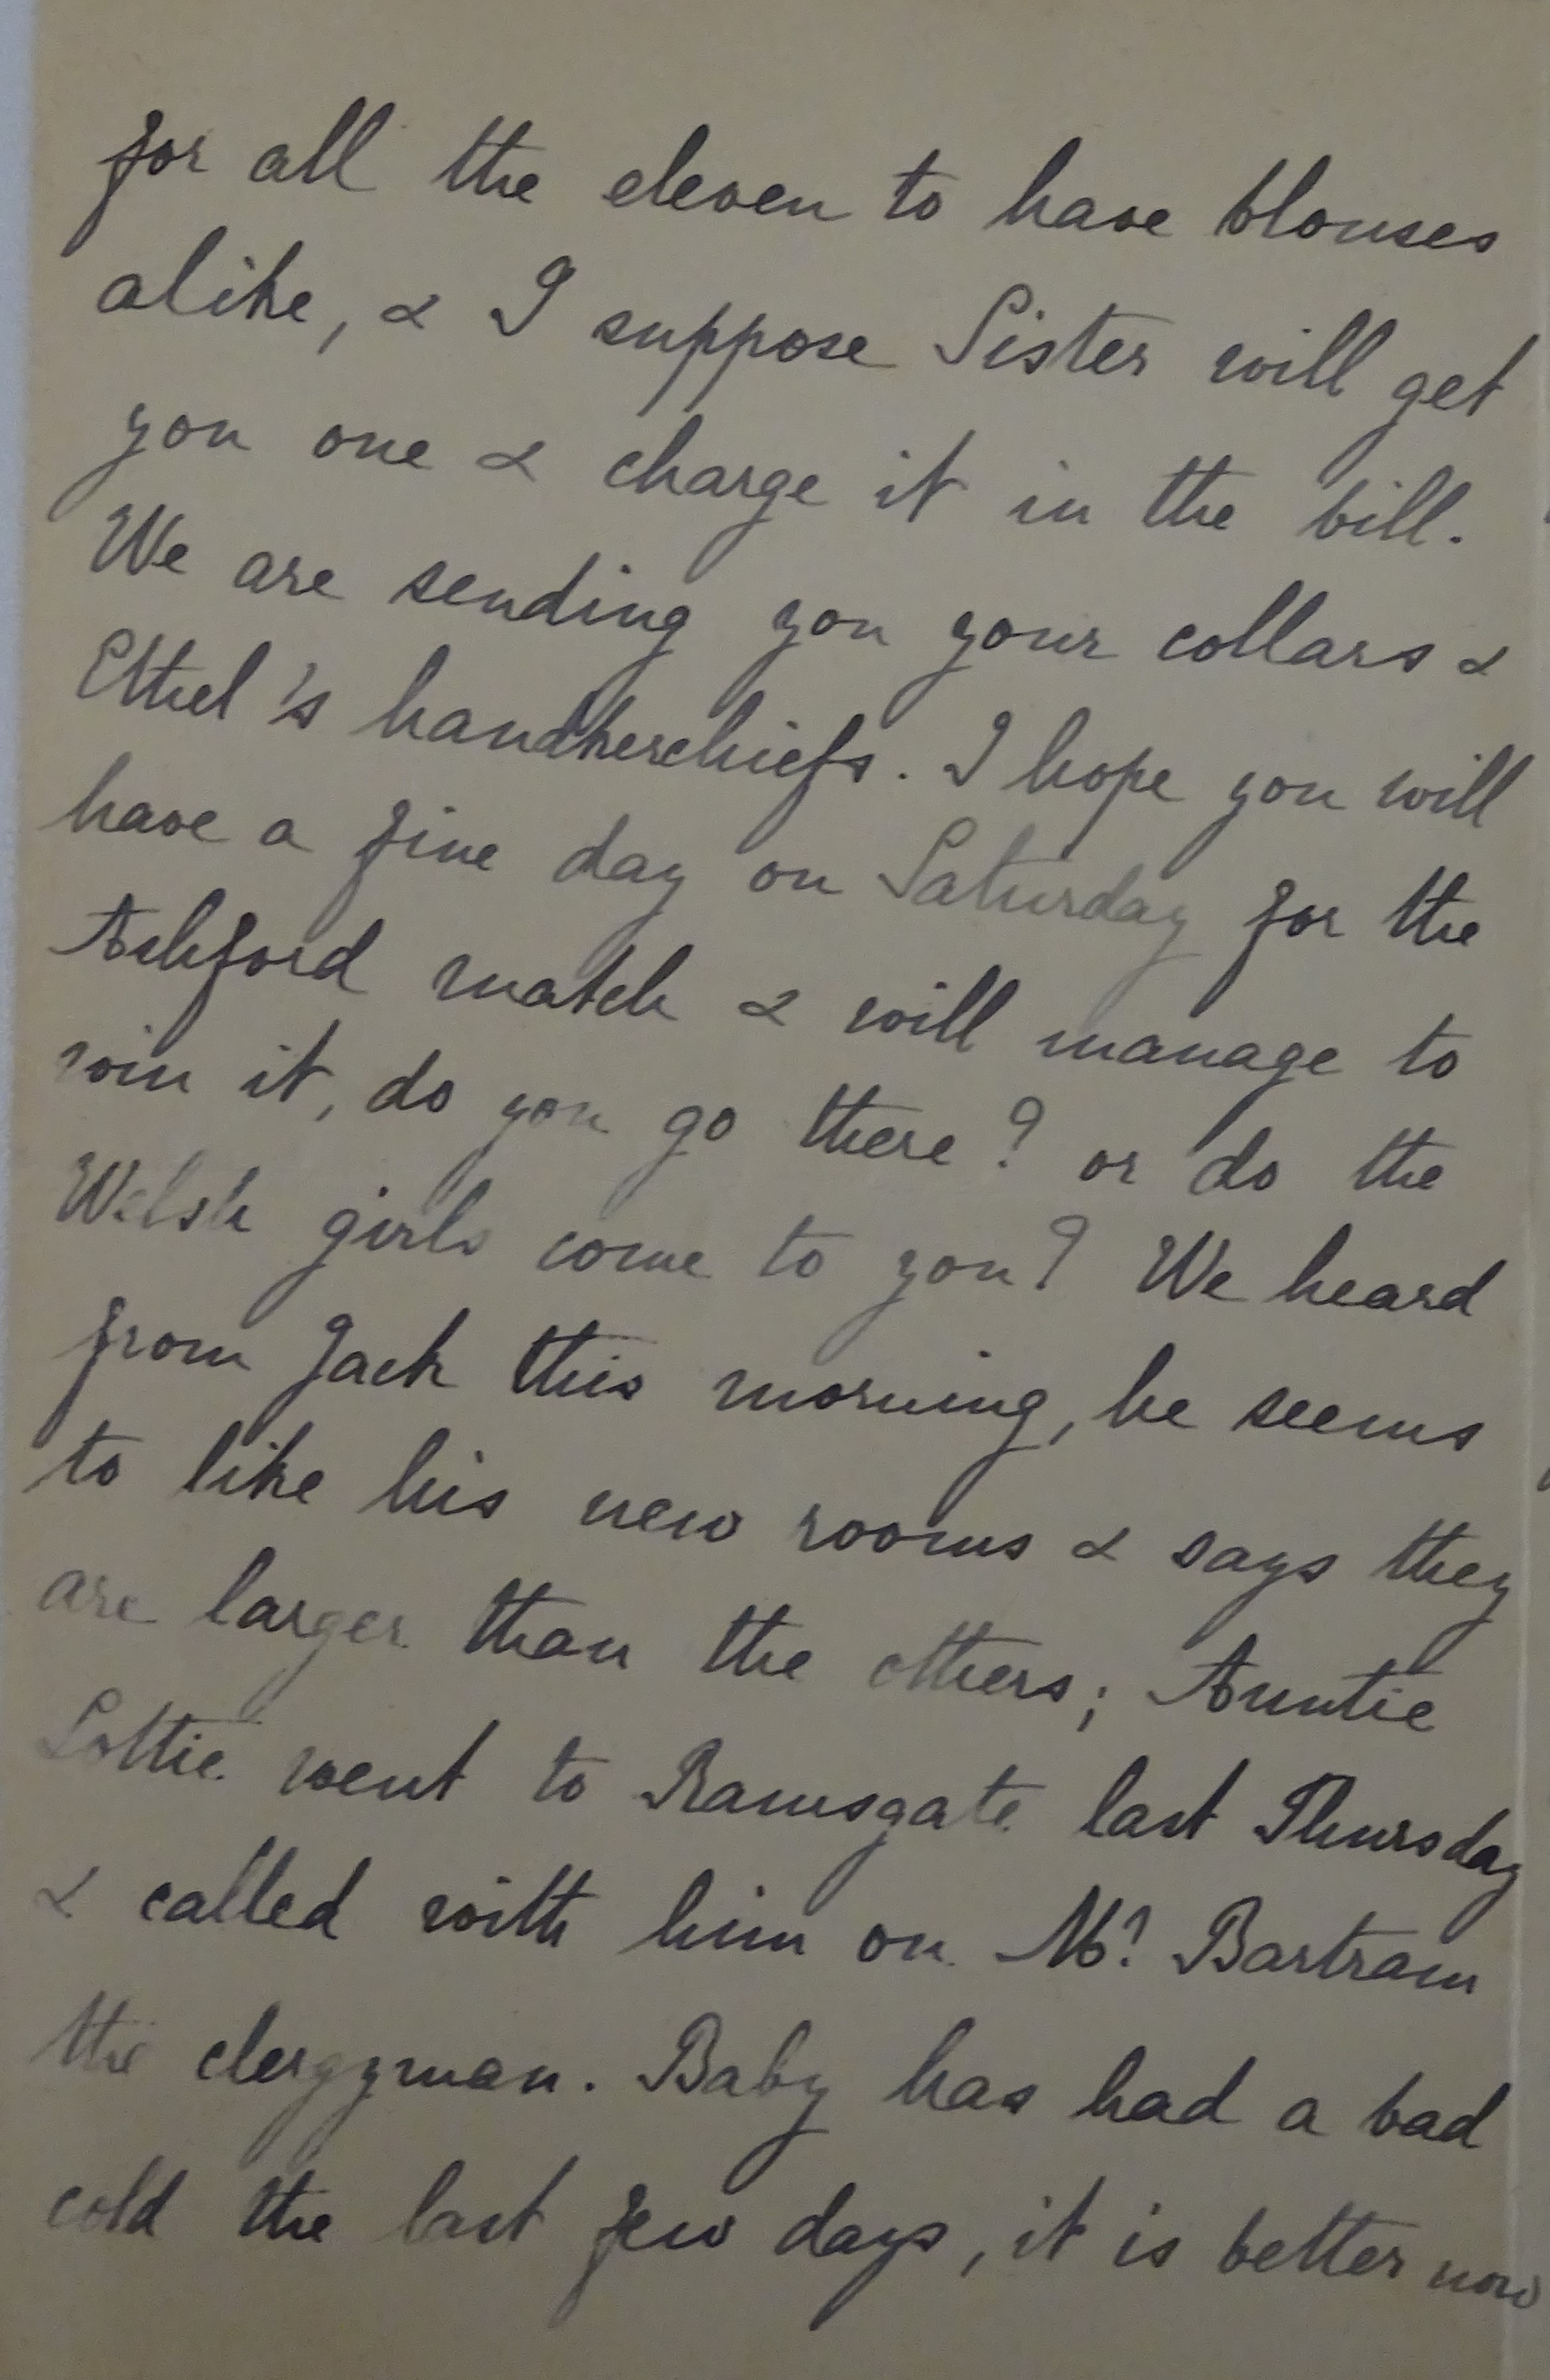 for all the eleven to have blouses
alike, & I suppose Sister will get
you one & charge it in the bill.
We are sending you your collars &
Ethel's handkerchiefs. I hope you will
have a fine day on Saturday for the
Ashford match & will manage to
win it, do you go there? or do the
Welsh girls come to you? We heard
from Jack this morning, he seems
to like his new rooms & says they
are larger than the others; Auntie
Lottie went to Ramsgate last Thursday
& called with him on Mr Bartram
the clergyman. Baby has had a bad
cold the last few days, it is better now